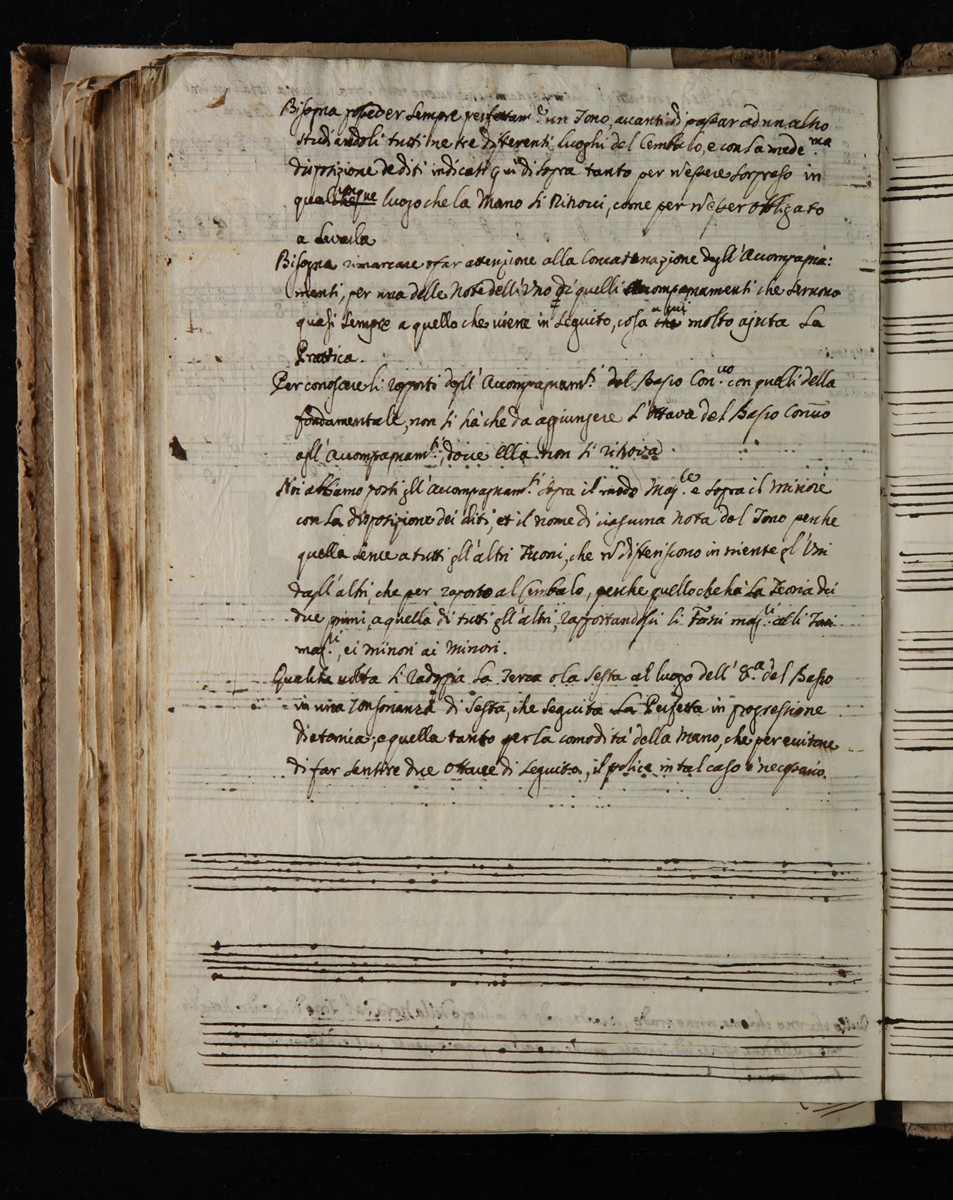 Bisogna posseder sempre perfettam.te un Tono, avanti di passar ad un altro
studiandoli tutti ne tre differenti luoghi del Cembalo, e con la mede.ma
disposizione de diti indicati qui di sopra tanto per n'essere sorpreso in
qualunque luogo che la Mano si ritrovi, come per n'esser obligato
a
Bisogna rimarcare o far attenzione alla Concatenazione degl'Accompagna:
menti, per una delle Note dell'Uno di quelli accompagnamenti che servono
quasi sempre a quello che viene in seguito, cosa che molto ajuta La
Prattica.
Per conoscere li rapporti degl'Accompagnam.ti del Basso Con.uo con quelli della
fondamentale, non si hà che da aggiungere L'Ottava del Basso Con.uo
agl'Accompagnam.ti, dove ella non si ritrova.
Noi abbiamo posti gl'accompagnam.ti sopra il modo Maj.re e sopra il Minore
con La disposizione dei diti, et il nome di ciascuna Nota del Tono perche
quella serve a tutti gl'altri Tuoni, che n'differiscono in niente gl'Uni
dagl'altri, che per raporto al Cembalo, perche quello che hà La Teoria dei
due primi, a quella di tutti gl'altri, rapportandosi li Toni maj.ri alli Toni
maj.ri, e i minori ai Minori.
Qualche volta si radopia La Terza o la Sesta al luogo dell'8.a del Basso
in una Consonanza di Sesta, che seguita La Perfetta in progressione
Diatonica; e quella tanto per la comodità della Mano, che per evitare
di far sentire due Ottave di seguito, il police in tal caso è necessario.